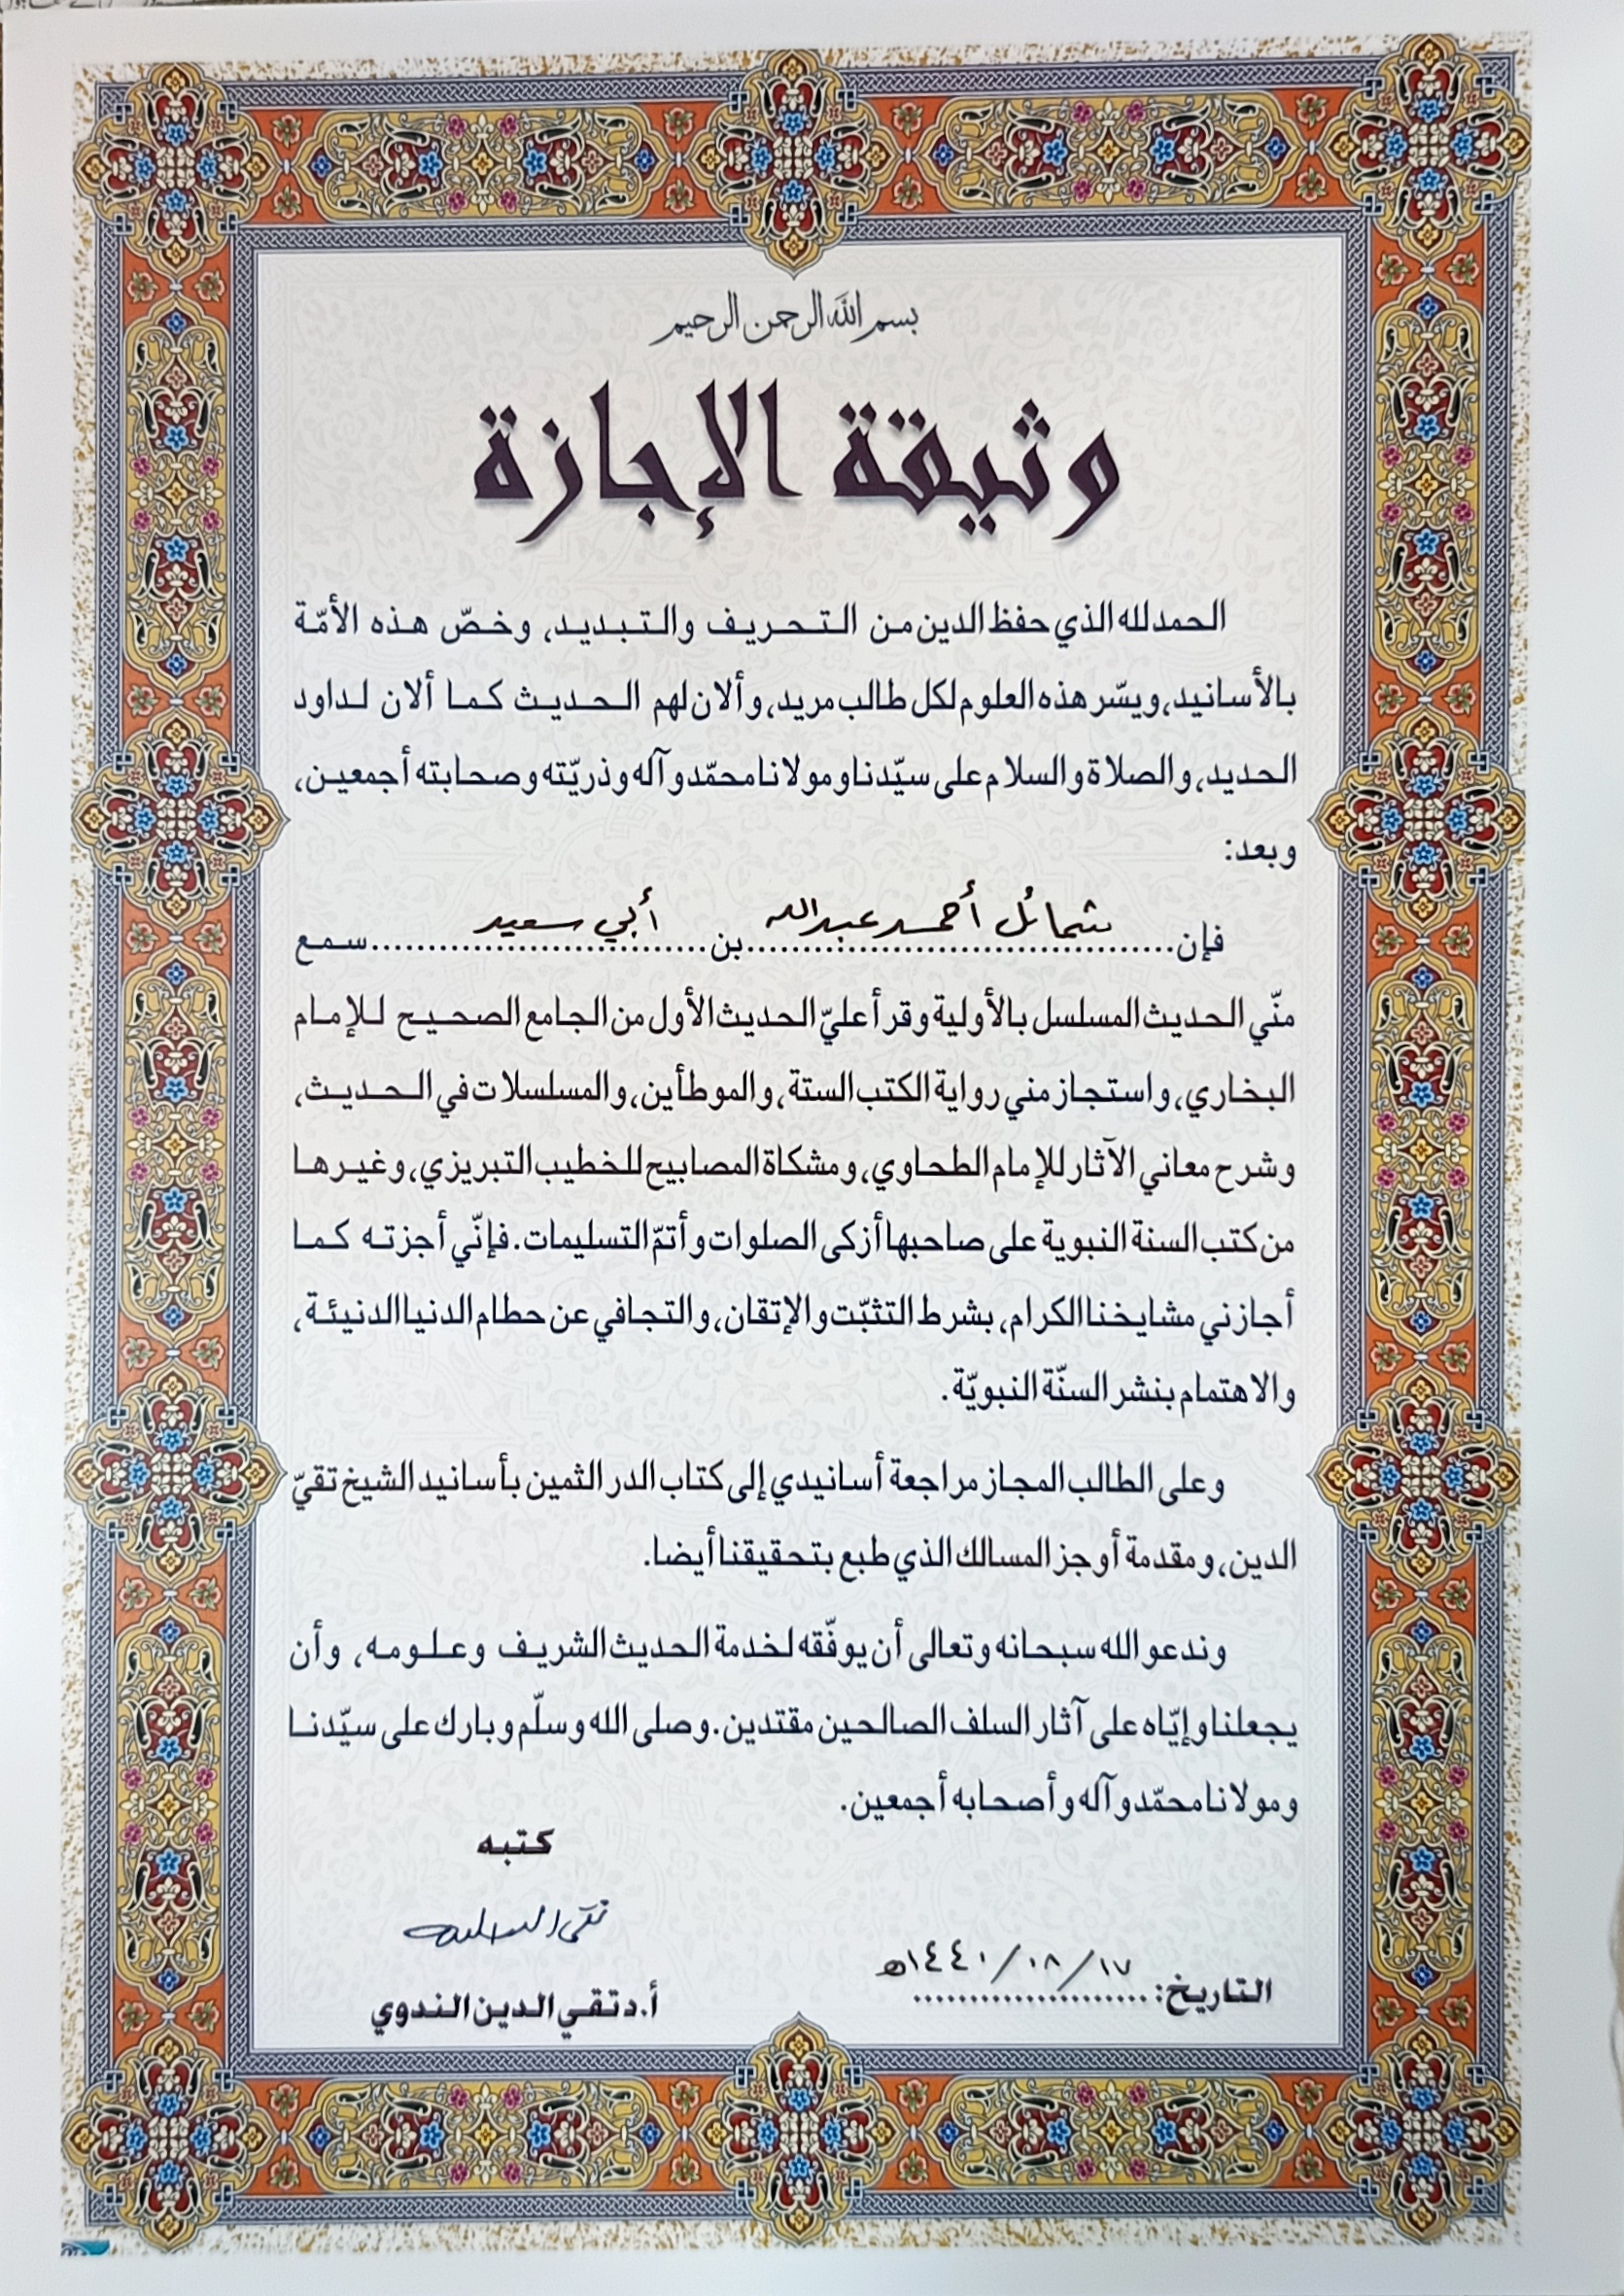 بسم الله الرحمن الرحيم
وثيقة الإجازة
الحمد لله الذي حفظ الدين من التحريف والتبديد، وخصّ هذه الأمّة
بالأسانيد، ويسّر هذه العلوم لكل طالب مريد، وألان لهم الحديث كما ألان لداود
الحديد، والصلاة والسلام على سيّدنا ومولانا محمّد وآله وذريّته وصحابته أجمعين،
وبعد:
فإن شمائل أحمد عبدالله بن أبي سعيد سمع
منّي الحديث المسلسل بالأولية وقرأ عليّ الحديث الأول من الجامع الصحيح للإمام
البخاري، واستجاز مني رواية الكتب الستة، والموطأين، والمسلسلات في الحديث،
وشرح معاني الآثار للإمام الطحاوي، ومشكاة المصابيح للخطيب التبريزي، وغيرها
من كتب السنة النبوية على صاحبها أزكى الصلوات وأتمّ التسليمات. فإنّي أجزته كما
أجازني مشايخنا الكرام، بشرط التثبّت والإتقان، والتجافي عن حطام الدنيا الدنيئة،
والاهتمام بنشر السنّة النبويّة.
وعلى الطالب المجاز مراجعة أسانيدي إلى كتاب الدر الثمين بأسانيد الشيخ تقيّ
الدين، ومقدمة أوجز المسالك الذي طبع بتحقيقنا أيضا.
وندعو الله سبحانه وتعالى أن يوفّقه لخدمة الحديث الشريف وعلومه، وأن
يجعلنا وإيّاه على آثار السلف الصالحين مقتدين. وصلى الله وسلّم وبارك على سيّدنا
ومولانا محمّد وآله وأصحابه أجمعين.
كتبه
التاريخ: ١٧/٠٨/١٤٤٠هـ
أ.د تقي الدين الندوي